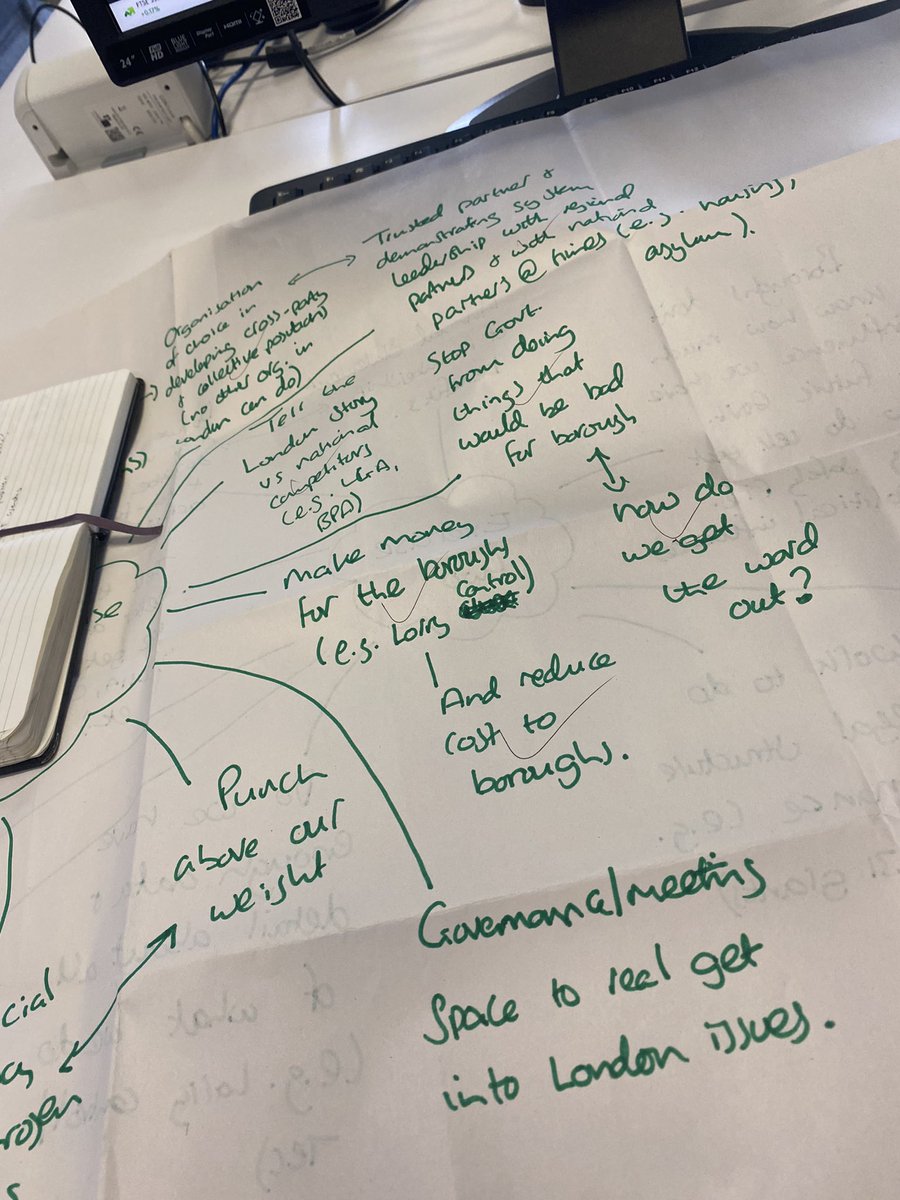 +0.17%
24"
FULL HD
HDMI
Organisation
of choice in
developing cross-party
& collective position)
(no other org. in
London can do)
Trusted partner &
demonstrating system
leadership with regional
partners & with national
partners @ times (e.g. housing,
asylum).
Tell the
London story
vs national
competitors
(e.g. LGA,
BPA)
Stop Govt.
from doing
things that
would be bad
for borough
how do
we get
the word
out?
make money
for the boroughs
(e.g. Lorry control)
And reduce
cost to
boroughs.
Punch
above our
weight
Governance/meeting
space to real get
into London issues.
cial
rogen